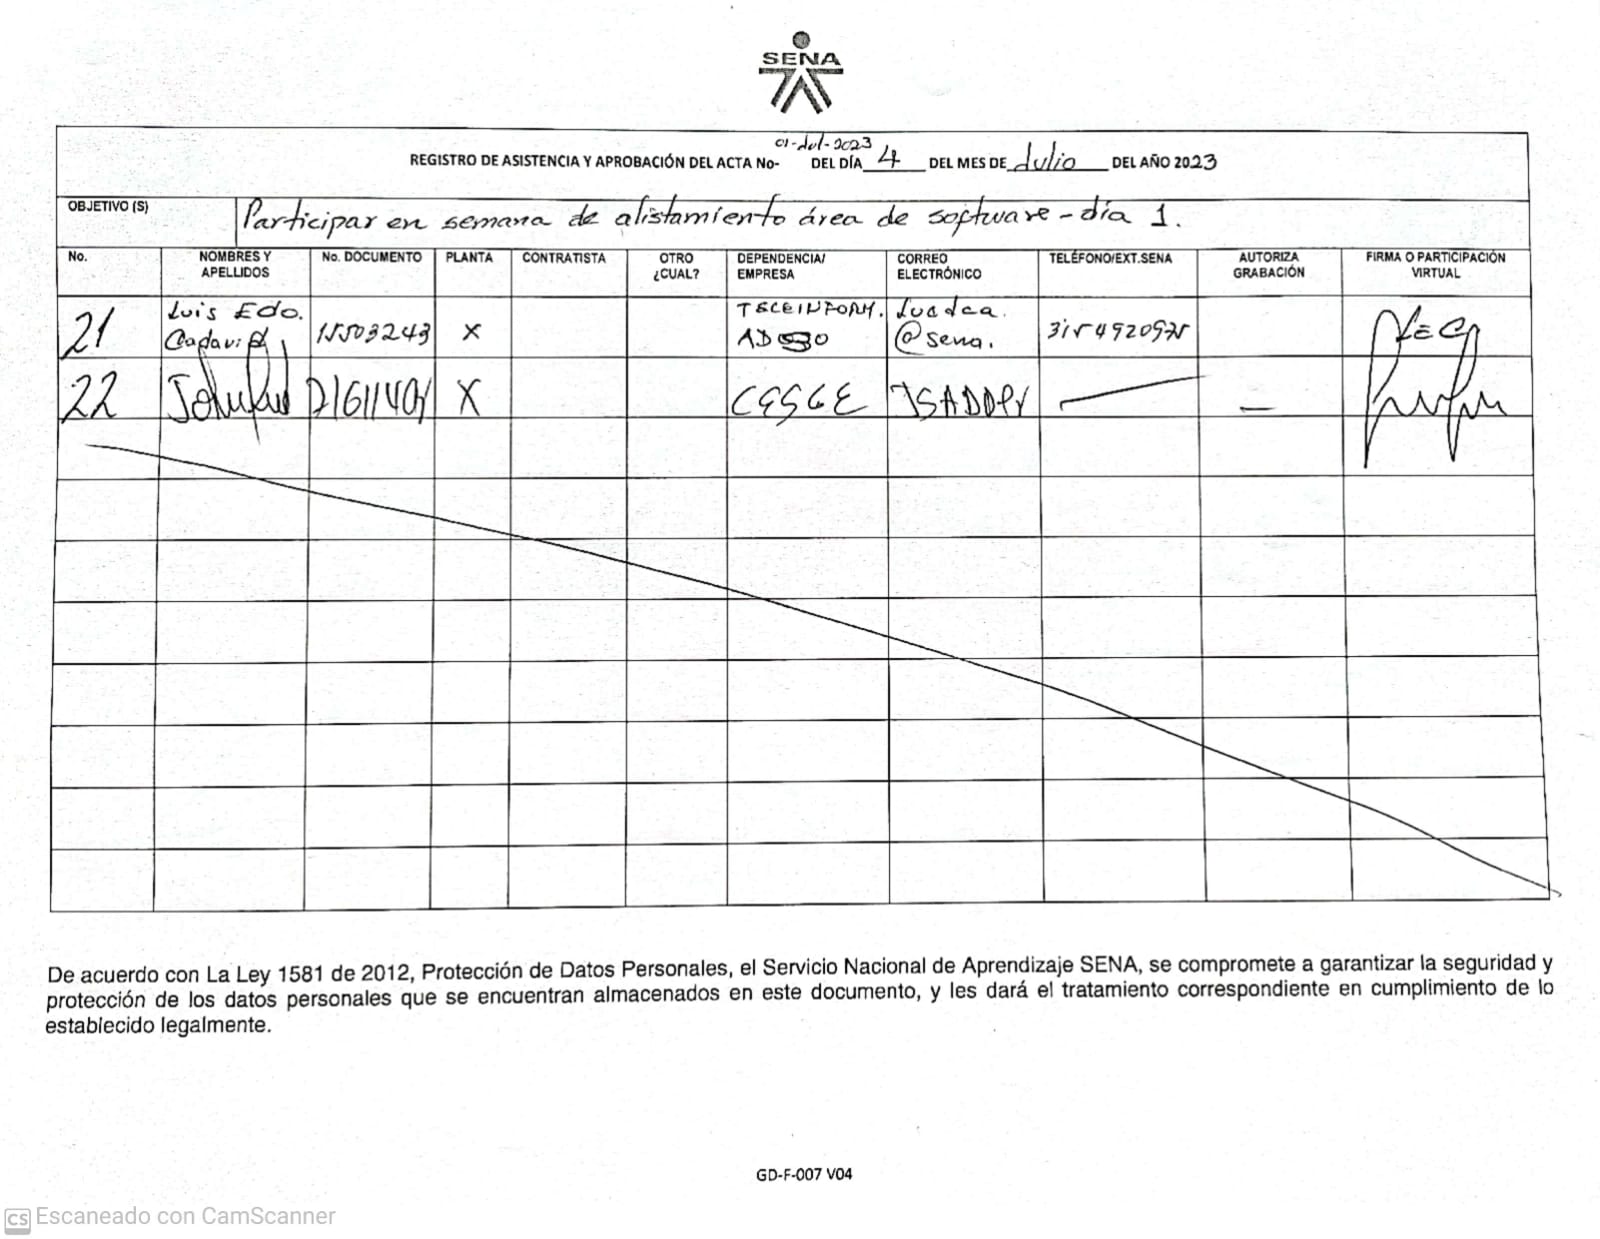 SENA
REGISTRO DE ASISTENCIA Y APROBACIÓN DEL ACTA No- 01-Jul-2023 DEL DÍA 4 DEL MES DE Julio DEL AÑO 2023
OBJETIVO (S) Participar en semana de alistamiento área de software - día 1.
No. NOMBRES Y APELLIDOS No. DOCUMENTO PLANTA CONTRATISTA OTRO ¿CUAL? DEPENDENCIA/ EMPRESA CORREO ELECTRÓNICO TELÉFONO/EXT.SENA AUTORIZA GRABACIÓN FIRMA O PARTICIPACIÓN VIRTUAL
21 Luis Edo. Cadavid 15503243 X TELEINFORM. Luadca. @sena. 3154920975 LECA
22 X CGSGE
De acuerdo con La Ley 1581 de 2012, Protección de Datos Personales, el Servicio Nacional de Aprendizaje SENA, se compromete a garantizar la seguridad y
protección de los datos personales que se encuentran almacenados en este documento, y les dará el tratamiento correspondiente en cumplimiento de lo
establecido legalmente.
GD-F-007 V04
CS Escaneado con CamScanner